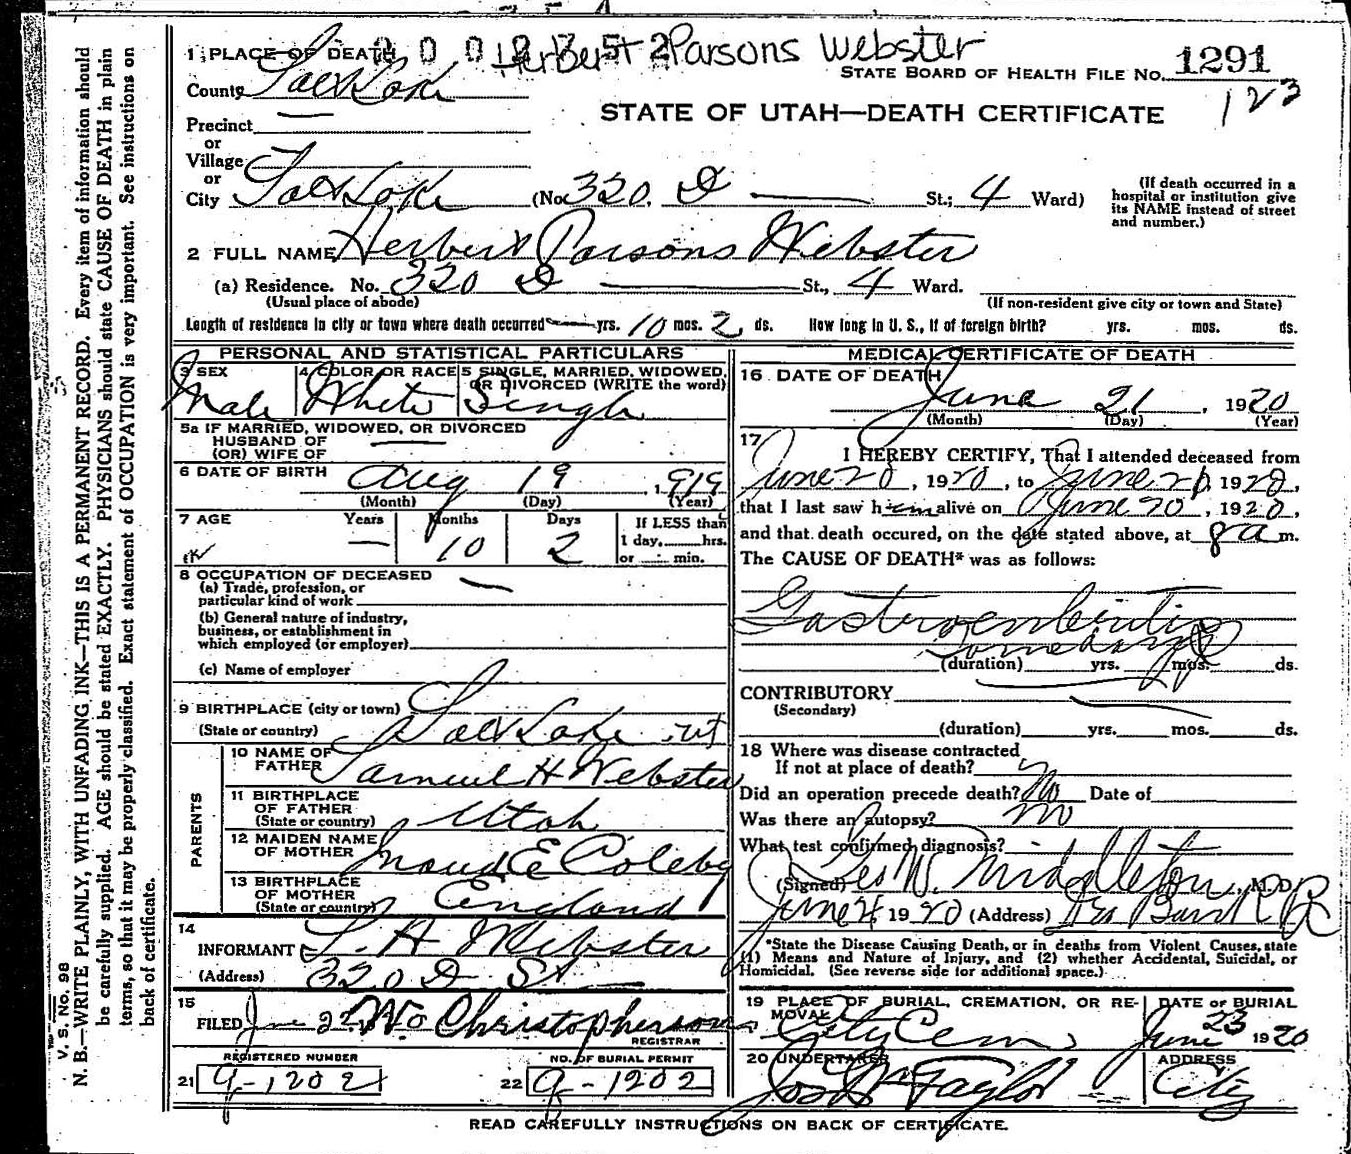 Herbert Parsons Webster
1 PLACE OF DEATH
STATE BOARD OF HEALTH FILE NO. 1291
County Salt Lake
123
STATE OF UTAH—DEATH CERTIFICATE
Precinct
or
Village
or
City Salt Lake (No. 320 D St.; 4 Ward)
(If death occurred in a
hospital or institution give
its NAME instead of street
and number.)
2 FULL NAME Herbert Parsons Webster
(a) Residence. No. 320 D St., 4 Ward.
(Usual place of abode) (If non-resident give city or town and State)
Length of residence in city or town where death occurred — yrs. 10 mos. 2 ds. How long in U. S., if of foreign birth? yrs. mos. ds.
PERSONAL AND STATISTICAL PARTICULARS
3 SEX Male
4 COLOR OR RACE White
5 SINGLE, MARRIED, WIDOWED,
OR DIVORCED (WRITE the word)
Single
5a IF MARRIED, WIDOWED, OR DIVORCED
HUSBAND OF
(OR) WIFE OF
6 DATE OF BIRTH Aug 19, 1919
(Month) (Day) (Year)
7 AGE Years Months Days If LESS than
— 10 2 1 day, hrs.
or min.
8 OCCUPATION OF DECEASED —
(a) Trade, profession, or
particular kind of work
(b) General nature of industry,
business, or establishment in
which employed (or employer)
(c) Name of employer
9 BIRTHPLACE (city or town)
(State or country) Salt Lake Ut
PARENTS
10 NAME OF
FATHER Samuel H Webster
11 BIRTHPLACE
OF FATHER
(State or country) Utah
12 MAIDEN NAME
OF MOTHER Maud E Coleby
13 BIRTHPLACE
OF MOTHER
(State or country) England
14
INFORMANT S. H Webster
(Address) 320 D St
15
FILED June 22 Wo Christopherson
REGISTRAR
REGISTERED NUMBER
21 9-1202
NO. OF BURIAL PERMIT
22 9-1202
MEDICAL CERTIFICATE OF DEATH
16 DATE OF DEATH
June 21, 1920
(Month) (Day) (Year)
17
I HEREBY CERTIFY, That I attended deceased from
June 20, 1920, to June 21, 1920,
that I last saw him alive on June 20, 1920,
and that death occured, on the date stated above, at 8 a m.
The CAUSE OF DEATH* was as follows:
Gastroenteritis
Some days
(duration) yrs. mos. ds.
CONTRIBUTORY
(Secondary)
(duration) yrs. mos. ds.
18 Where was disease contracted
If not at place of death?
Did an operation precede death? No Date of
Was there an autopsy? no
What test confirmed diagnosis?
(Signed) Geo W. Middleton, M. D.
June 21 1920 (Address)
*State the Disease Causing Death, or in deaths from Violent Causes, state
(1) Means and Nature of Injury, and (2) whether Accidental, Suicidal, or
Homicidal. (See reverse side for additional space.)
19 PLACE OF BURIAL, CREMATION, OR RE-
MOVAL City Cem
DATE OF BURIAL
June 23 1920
20 UNDERTAKER
Jos Wm Taylor
ADDRESS
City
READ CAREFULLY INSTRUCTIONS ON BACK OF CERTIFICATE.
V. S. No. 98
N. B.—WRITE PLAINLY, WITH UNFADING INK—THIS IS A PERMANENT RECORD. Every item of information should
be carefully supplied. AGE should be stated EXACTLY. PHYSICIANS should state CAUSE OF DEATH in plain
terms, so that it may be properly classified. Exact statement of OCCUPATION is very important. See instructions on
back of certificate.